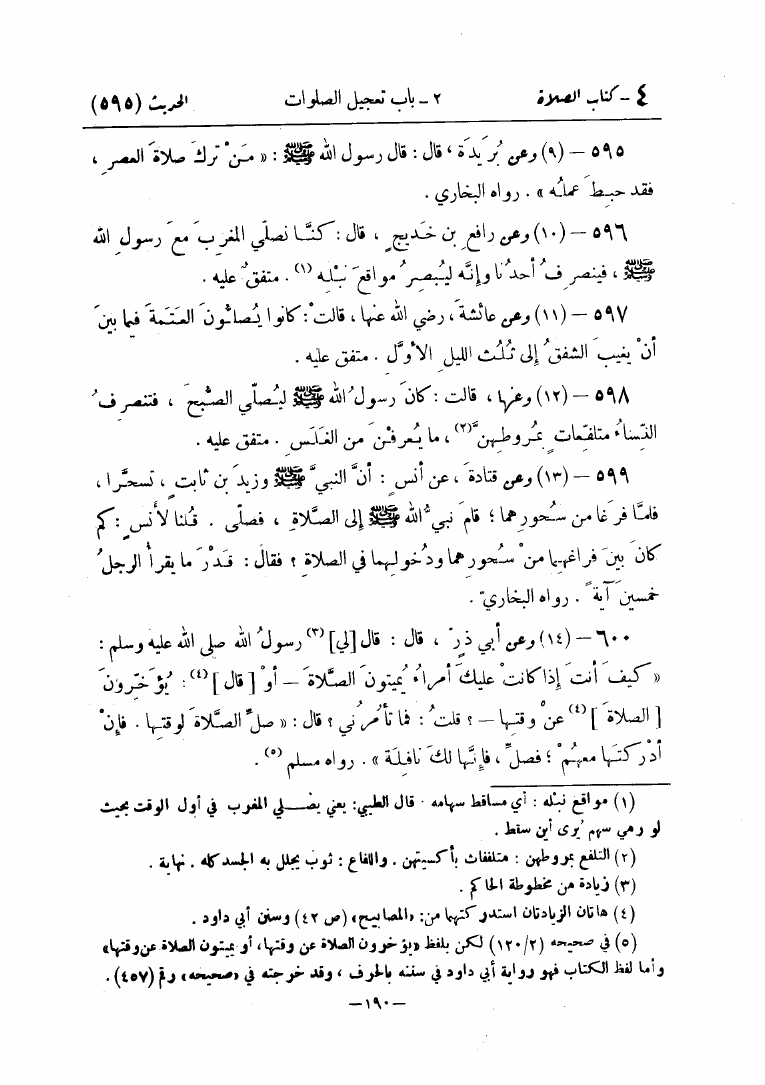 ٤ - كتاب الصلاة ٢ - باب تعجيل الصلوات الحديث (٥٩٥)
٥٩٥ - (٩) وعن بُرَيدَة، قال: قال رسول الله ﷺ: «مَنْ تركَ صلاةَ العصرِ،
فقد حبِطَ عملُه». رواه البخاري.
٥٩٦ - (١٠) وعن رافعِ بن خَديجٍ، قال: كنَّا نصلّي المغربَ معَ رسولِ الله
ﷺ، فينصرفُ أحدُنا وإنَّه ليُبصرُ مواقعَ نَبْلِه (١). متفقٌ عليه.
٥٩٧ - (١١) وعن عائشةَ، رضي الله عنها، قالتْ: كانوا يُصلّونَ العَتَمةَ فيما بينَ
أنْ يغيبَ الشفقُ إلى ثُلُث الليلِ الأوَّل. متفق عليه.
٥٩٨ - (١٢) وعنها، قالت: كانَ رسولُ الله ﷺ ليُصلّي الصُّبحَ، فتنصرفُ
النِّساءُ متلفِّعات بمُروطِهنَّ (٢)، ما يُعرفْنَ من الغَلَسِ. متفق عليه.
٥٩٩ - (١٣) وعن قتادةَ، عن أنسٍ: أنَّ النبيَّ ﷺ وزيدَ بن ثابتٍ، تسحَّرا،
فلمَّا فرَغا من سُحورِهما؛ قامَ نبيُّ الله ﷺ إلى الصَّلاةِ، فصلّى. قُلنا لأنسٍ: كم
كانَ بينَ فراغِهما منْ سُحورِهما ودُخولِهما في الصلاة؟ فقالَ: قَدْرَ ما يقرأ الرجلُ
خمسينَ آيةً. رواه البخاريّ.
٦٠٠ - (١٤) وعن أبي ذرّ، قال: قال [لي] (٣) رسولُ الله صلى الله عليه وسلم:
«كيفَ أنتَ إذا كانتْ عليكَ أمراءُ يُميتونَ الصَّلاةَ - أوْ [قال] (٤): يُؤَخِّرونَ
[الصلاةَ] (٤) عنْ وقتِها - ؟ قلتُ: فما تأمُرُني؟ قال: «صلِّ الصَّلاةَ لوقتِها. فإنْ
أدْركتَها معهُمْ؛ فصلِّ، فإنَّها لكَ نافلِة». رواه مسلم (٥).
(١) مواقع نبله: أي مساقط سهامه. قال الطيبي: يعني يصلي المغرب في أول الوقت بحيث
لو رمي سهم يُرى أين سقط.
(٢) التلفع بمروطهن: متلفعات بأكسيتهن. واللفاع: ثوب يجلل به الجسد كله. نهاية.
(٣) زيادة من مخطوطة الحاكم.
(٤) هاتان الزيادتان استدركتهما من: «المصابيح» (ص ٤٢) وسنن أبي داود.
(٥) في صحيحه (١٢٠/٢) لكن بلفظ «يؤخرون الصلاة عن وقتها، أو يميتون الصلاة عن وقتها»
وأما لفظ الكتاب فهو رواية أبي داود في سننه بالحرف، وقد خرجته في «صحيحه» رقم (٤٥٧).
- ١٩٠ -